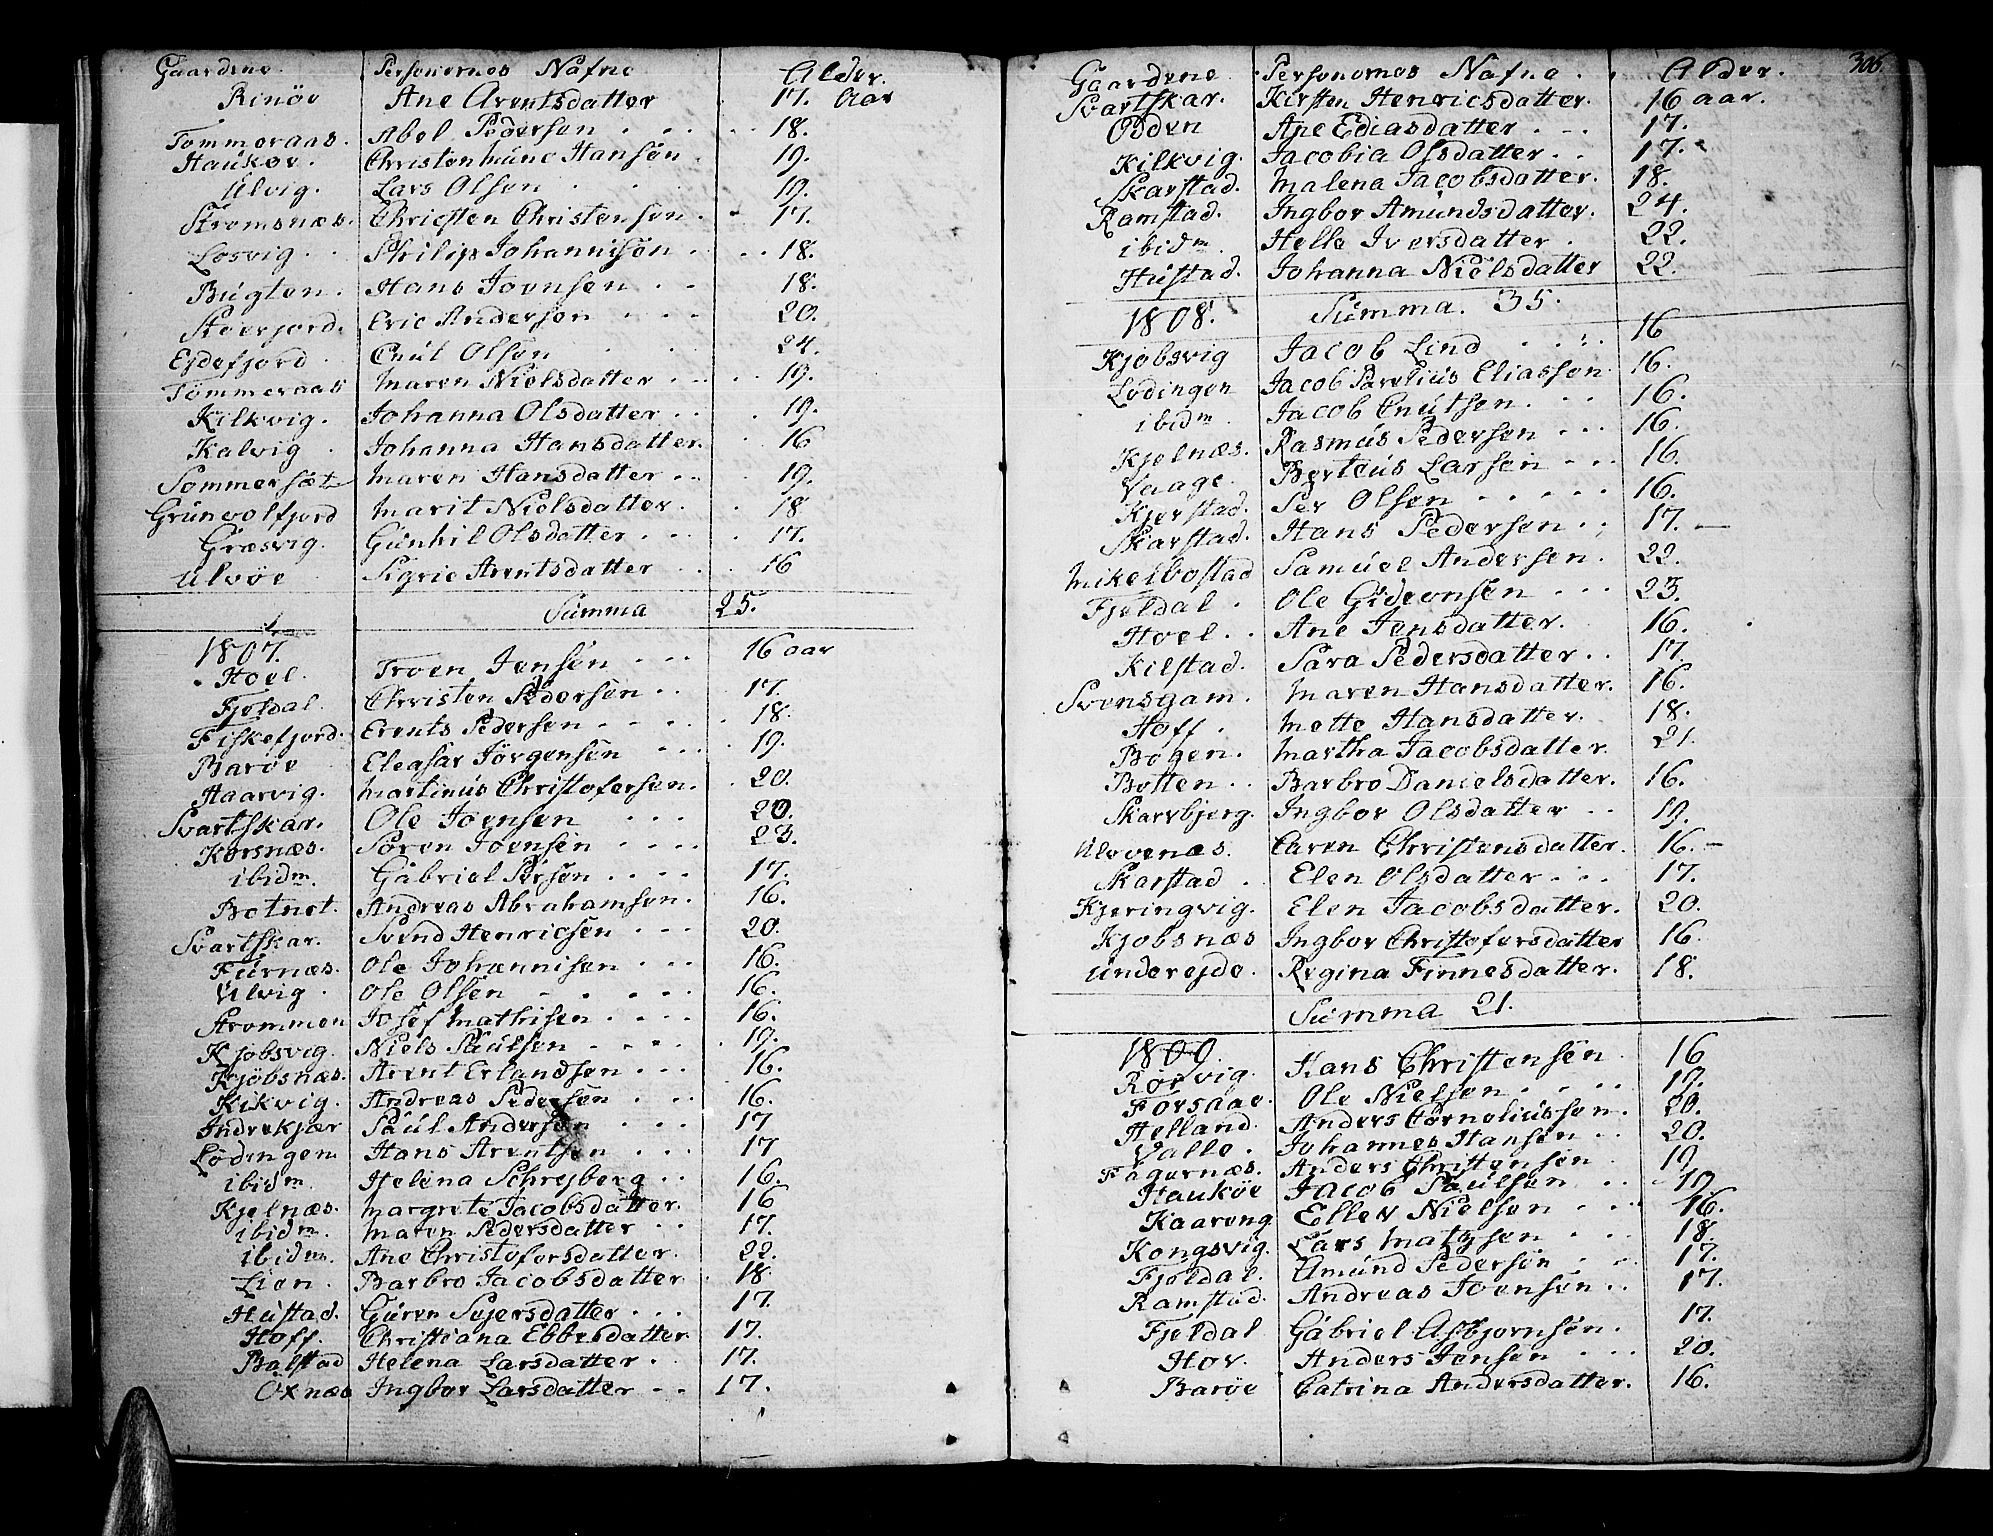 Gaardene. Personernes Nafne Alder.
Rinöe Ane Arentsdatter 17. Aar
Tommeraas. Abel Pedersen 18.
Haukøe. Christen Hansøn. 19.
Ulvig. Lars Olsen 19.
Strømsnæs. Christen Christensen. 17.
Løsvig. Philip Johannisøn 18.
Bugten. Hans Joensen 18.
Støerfjord. Eric Andersøn 20.
Ejdefjord. Cnut Olsøn 24.
Tømmeraas Maren Nielsdatter 19.
Kilkvig. Johanna Olsdatter 19.
Kalvig Johanna Hansdatter. 16
Sommersæt Maren Hansdatter 19.
Grunvolfjord Marit Nielsdatter. 18
Græsvig. Gunhil Olsdatter 17.
Ulvöe Sigrie Arentsdatter 16
Summa 25.
1807.
Hoel. Troen Jensøn 16 aar
Fjeldal. Christen Pedersøn 17.
Fiskefjord. Erents Pedersen 18.
Barøe Eleasar Jörgensøn 19.
Haarvig. Martinus Christofersen. 20.
Svartskar. Ole Joensen 20.
Korsnæs. Søren Joensen 23.
ibidm. Gabriel Persøn 17.
Botnet. Andreas Abrahamsen. 16.
Svartskar. Svend Henricsøn 20.
Furnæs. Ole Johannisen 16.
Ulvig Ole Olsen 16.
Strømmen Josef Mathisen 16.
Kjøbsvig. Niels Paulsen 19.
Kjöbsnæs. Arent Erlandsen 16.
Kikvig. Andreas Pedersøn 16.
Indrekjær Paul Andersøn 17
Lødingen Hans Arentsen 17
ibidm Helena Schrejberg 16.
Kjelnæs. Margrete Jacobsdatter. 16
ibidm. Maren Pedersdatter 17.
ibidm Ane Christofersdatter. 22.
Lien. Barbro Jacobsdatter 18.
Hustad. Guren Sejersdatter 17.
Hoff. Christiana Ebbesdatter 17.
Balstad Helena Larsdatter 17.
Oxnæs Ingbor Larsdatter 17.
306.
Gaardene Personernes Nafne. Alder.
Svartskar. Kirsten Henricsdatter. 16 aar.
Odden Ane Ediasdatter 17.
Kilkvig. Jacobia Olsdatter 17.
Skarstad. Malena Jacobsdatter. 18.
Ramstad. Ingbor Amundsdatter. 24.
ibidm. Helle Iversdatter 22.
Hustad. Johanna Nielsdatter 22.
Summa. 35.
1808.
Kjøbsvig Jacob Lind 16
Lødingen Jacob Parelius Eliassøn 16.
ibidm Jacob Cnutsen. 16.
Kjelnæs. Rasmus Pedersen 16.
Vaage. Berteus Larsøn 16.
Kjerstad. Per Olsen 16.
Skarstad. Hans Pedersen 17.
Mikelbostad Samuel Andersen. 22.
Fjeldal. Ole Gideonsen 23.
Hoel. Ane Jensdatter. 16.
Kilstad. Sara Pedersdatter 17
Svensgam. Maren Hansdatter. 16.
Hoff. Mette Hansdatter. 18.
Bogen. Martha Jacobsdatter 21.
Botten Barbro Danielsdatter. 16.
Skarvbjerg. Ingbor Olsdatter 19.
Ulvenæs. Caren Christensdatter. 16.
Skarstad Elen Olsdatter 17.
Kjeringvig. Elen Jacobsdatter. 20.
Kjobsnæs Ingbor Christofersdatter 16.
Underejde. Regina Finnesdatter. 18.
Summa 21.
1809.
Rørvig. Hans Christensen 16
Forsaae. Ole Nielsen 19.
Helland. Anders Corneliussen. 20.
Valle. Johannes Hansøn 20.
Fagernæs. Anders Christensøn 19
Haukøe Jacob Paulsen 19.
Kaareng Eller Nielsen 16.
Kongsvig. Lars Mathjsen 18.
Fjeldal. Amund Pedersøn 17.
Ramstad. Andreas Joensen 17.
Fjeldal Gabriel Asbjornsøn. 17.
Hov. Anders Jensen 20.
Barøe Catrina Andersdatter. 16.